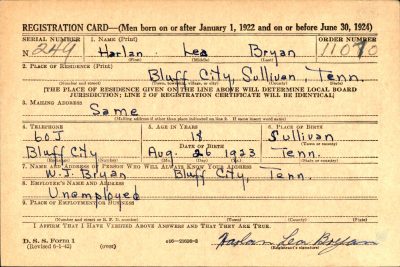 REGISTRATION CARD—(Men born on or after January 1, 1922 and on or before June 30, 1924)
SERIAL NUMBER 1. NAME (Print) ORDER NUMBER
N 249 Harlan Lea Bryan 11070
(First) (Middle) (Last)
2. PLACE OF RESIDENCE (Print)
Bluff City, Sullivan, Tenn.
(Number and street) (Town, township, village, or city) (County) (State)
[THE PLACE OF RESIDENCE GIVEN ON THE LINE ABOVE WILL DETERMINE LOCAL BOARD
JURISDICTION; LINE 2 OF REGISTRATION CERTIFICATE WILL BE IDENTICAL]
3. MAILING ADDRESS
Same
(Mailing address if other than place indicated on line 2. If same insert word same)
4. TELEPHONE 5. AGE IN YEARS 6. PLACE OF BIRTH
60J 18 Sullivan
DATE OF BIRTH (Town or county)
Bluff City Aug. 26 1923 Tenn.
(Exchange) (Number) (Mo.) (Day) (Yr.) (State or country)
7. NAME AND ADDRESS OF PERSON WHO WILL ALWAYS KNOW YOUR ADDRESS
W. J. Bryan Bluff City, Tenn.
8. EMPLOYER'S NAME AND ADDRESS
Unemployed
9. PLACE OF EMPLOYMENT OR BUSINESS
(Number and street or R. F. D. number) (Town) (County) (State)
I AFFIRM THAT I HAVE VERIFIED ABOVE ANSWERS AND THAT THEY ARE TRUE.
D. S. S. Form 1
(Revised 6-1-42) (over) c16—21630-2 Harlan Lea Bryan
(Registrant's signature)